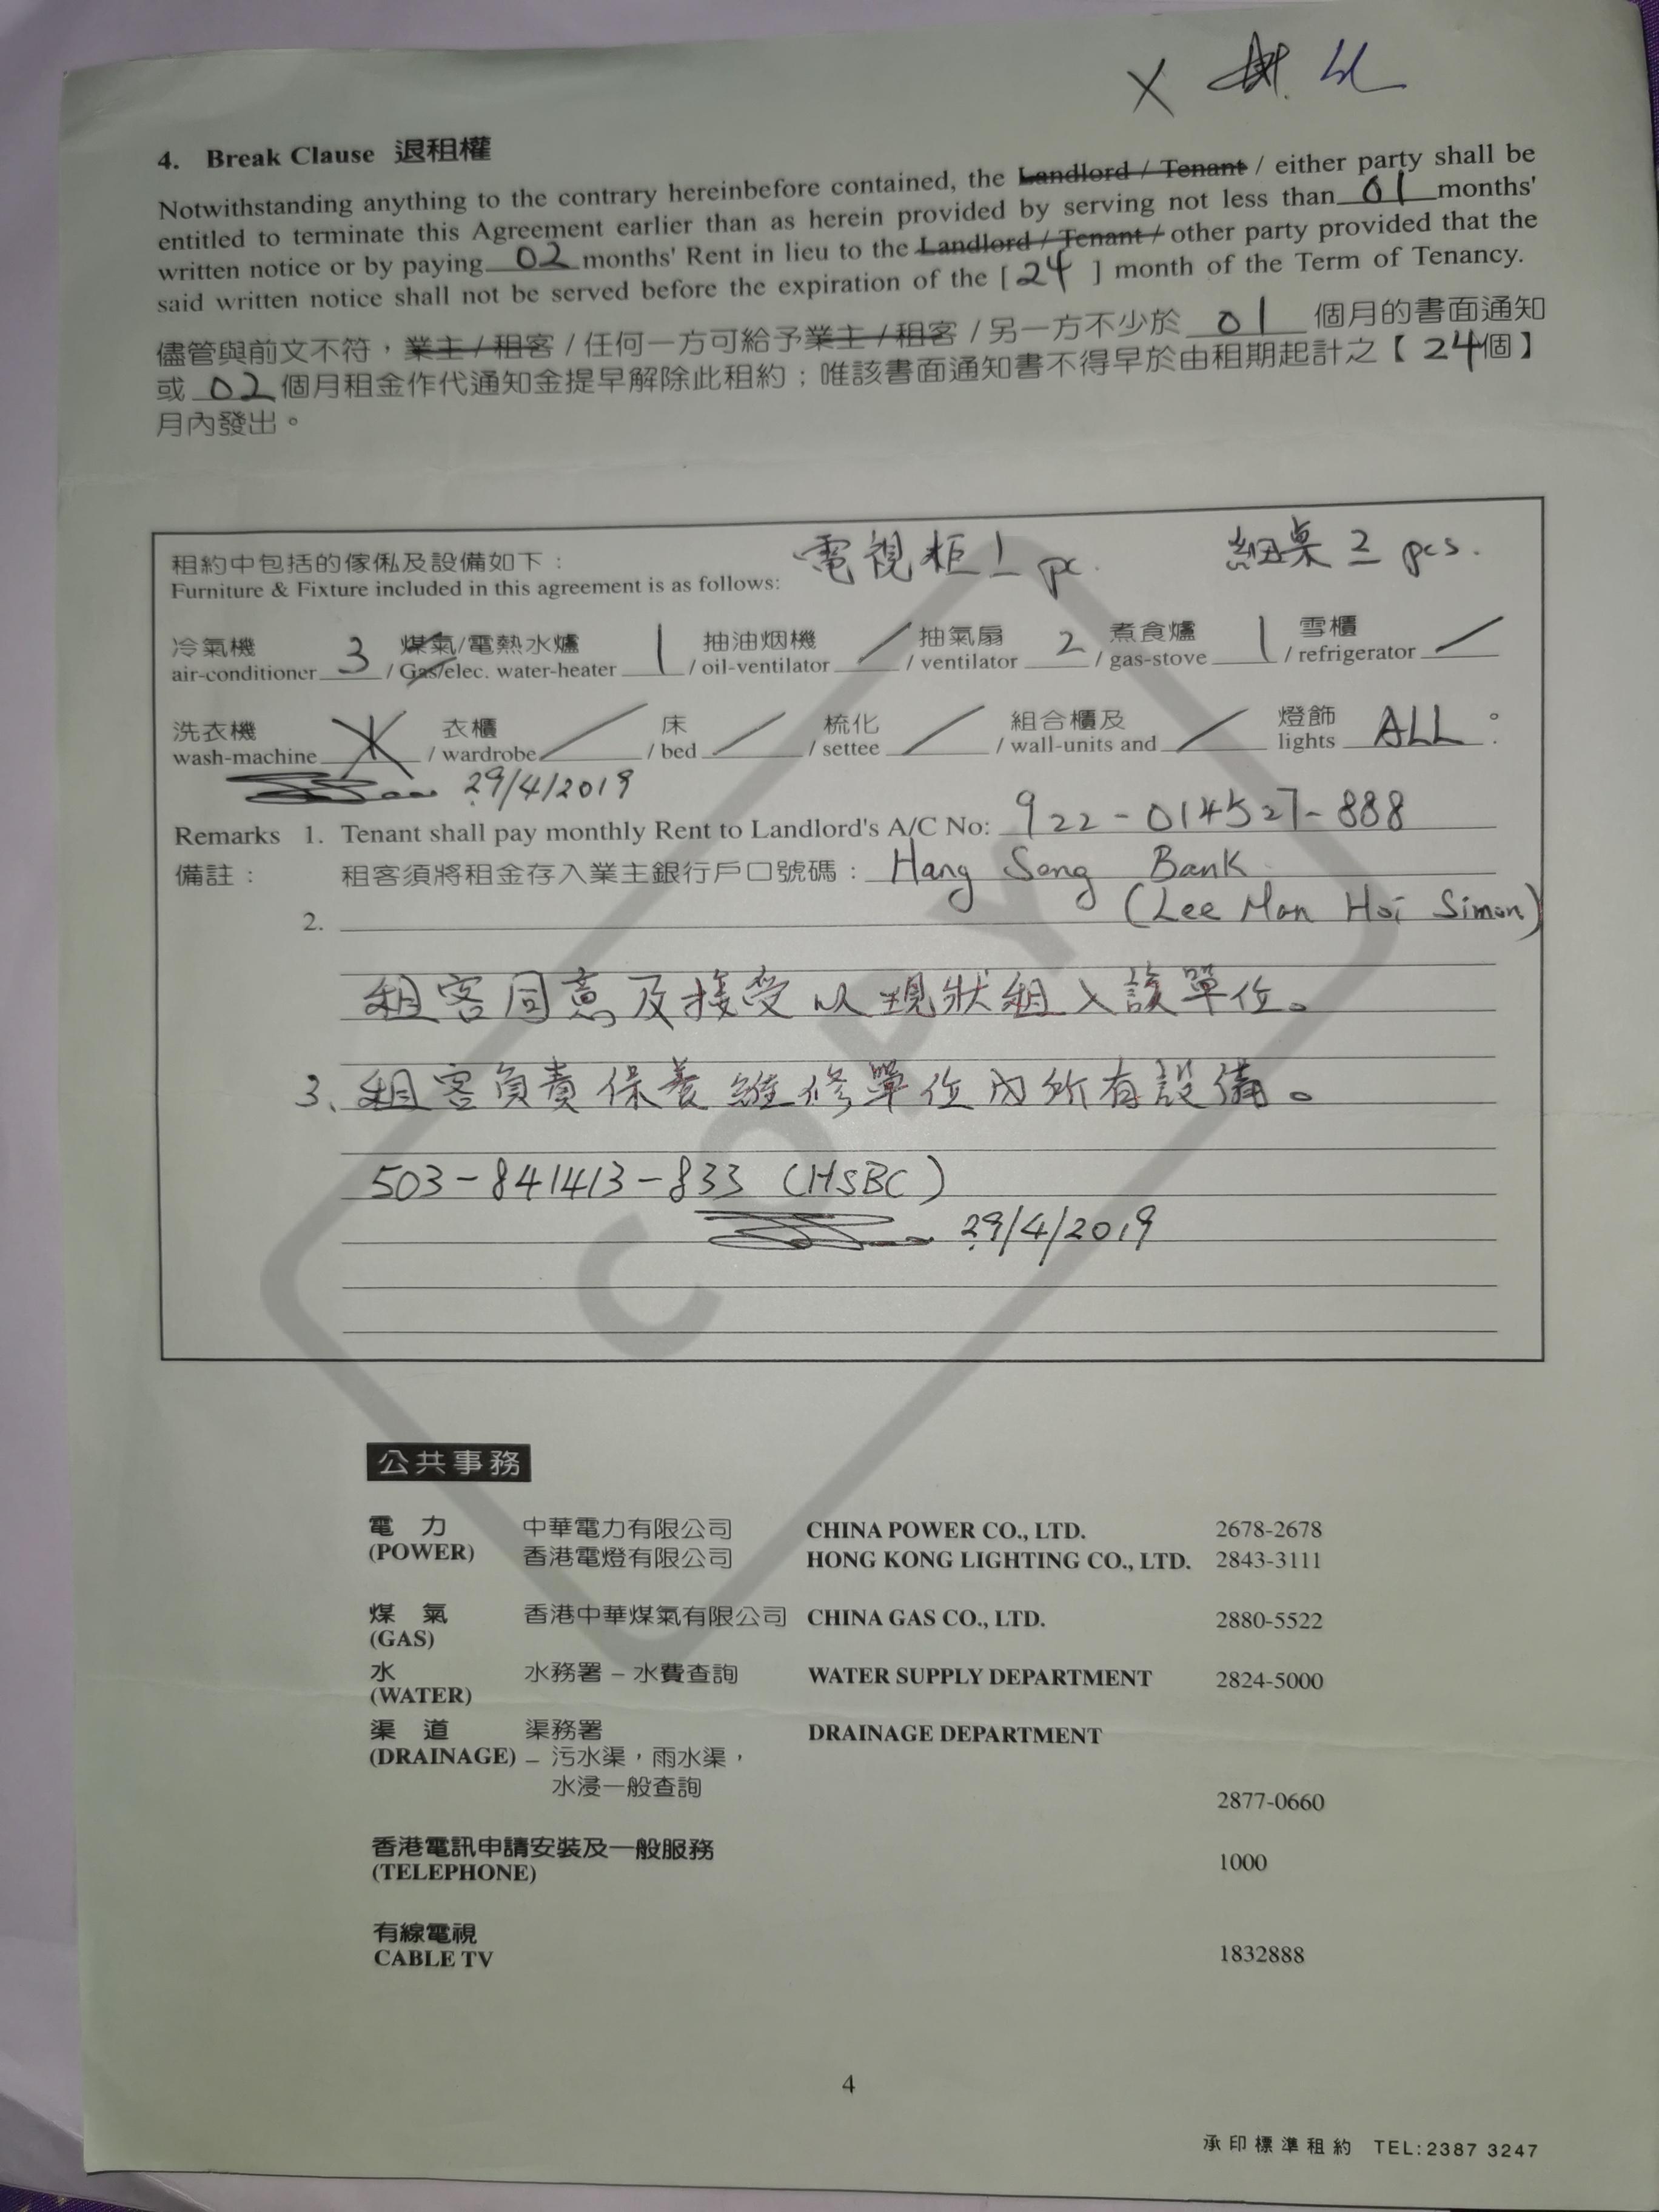 4. Break Clause 退租權
Notwithstanding anything to the contrary hereinbefore contained, the Landlord / Tenant / either party shall be
entitled to terminate this Agreement earlier than as herein provided by serving not less than 01 months'
written notice or by paying 02 months' Rent in lieu to the Landlord / Tenant / other party provided that the
said written notice shall not be served before the expiration of the [ 24 ] month of the Term of Tenancy.
儘管與前文不符，業主 / 租客 / 任何一方可給予業主 / 租客 / 另一方不少於 01 個月的書面通知
或 02 個月租金作代通知金提早解除此租約；唯該書面通知書不得早於由租期起計之【 24個 】
月內發出。
電視柜 1 pc. 細桌 2 pcs.
租約中包括的傢俬及設備如下：
Furniture & Fixture included in this agreement is as follows:
冷氣機 煤氣/電熱水爐 抽油烟機 抽氣扇 煮食爐 雪櫃
air-conditioner 3 / Gas/elec. water-heater 1 / oil-ventilator / / ventilator 2 / gas-stove 1 / refrigerator /
洗衣機 衣櫃 床 梳化 組合櫃及 燈飾
wash-machine X / wardrobe / / bed / / settee / / wall-units and / lights ALL 。
29/4/2019
Remarks 1. Tenant shall pay monthly Rent to Landlord's A/C No: 922-014527-888
備註： 租客須將租金存入業主銀行戶口號碼： Hang Seng Bank
2. (Lee Man Hoi Simon)
租客同意及接受以現狀租入該單位。
3、租客負責保養維修單位內所有設備。
503-841413-833 (HSBC)
29/4/2019
COPY
公共事務
電 力 中華電力有限公司 CHINA POWER CO., LTD. 2678-2678
(POWER) 香港電燈有限公司 HONG KONG LIGHTING CO., LTD. 2843-3111
煤 氣 香港中華煤氣有限公司 CHINA GAS CO., LTD. 2880-5522
(GAS)
水 水務署 – 水費查詢 WATER SUPPLY DEPARTMENT 2824-5000
(WATER)
渠 道 渠務署 DRAINAGE DEPARTMENT
(DRAINAGE) – 污水渠，雨水渠，
水浸一般查詢 2877-0660
香港電訊申請安裝及一般服務
(TELEPHONE) 1000
有線電視
CABLE TV 1832888
4
承印標準租約 TEL:2387 3247